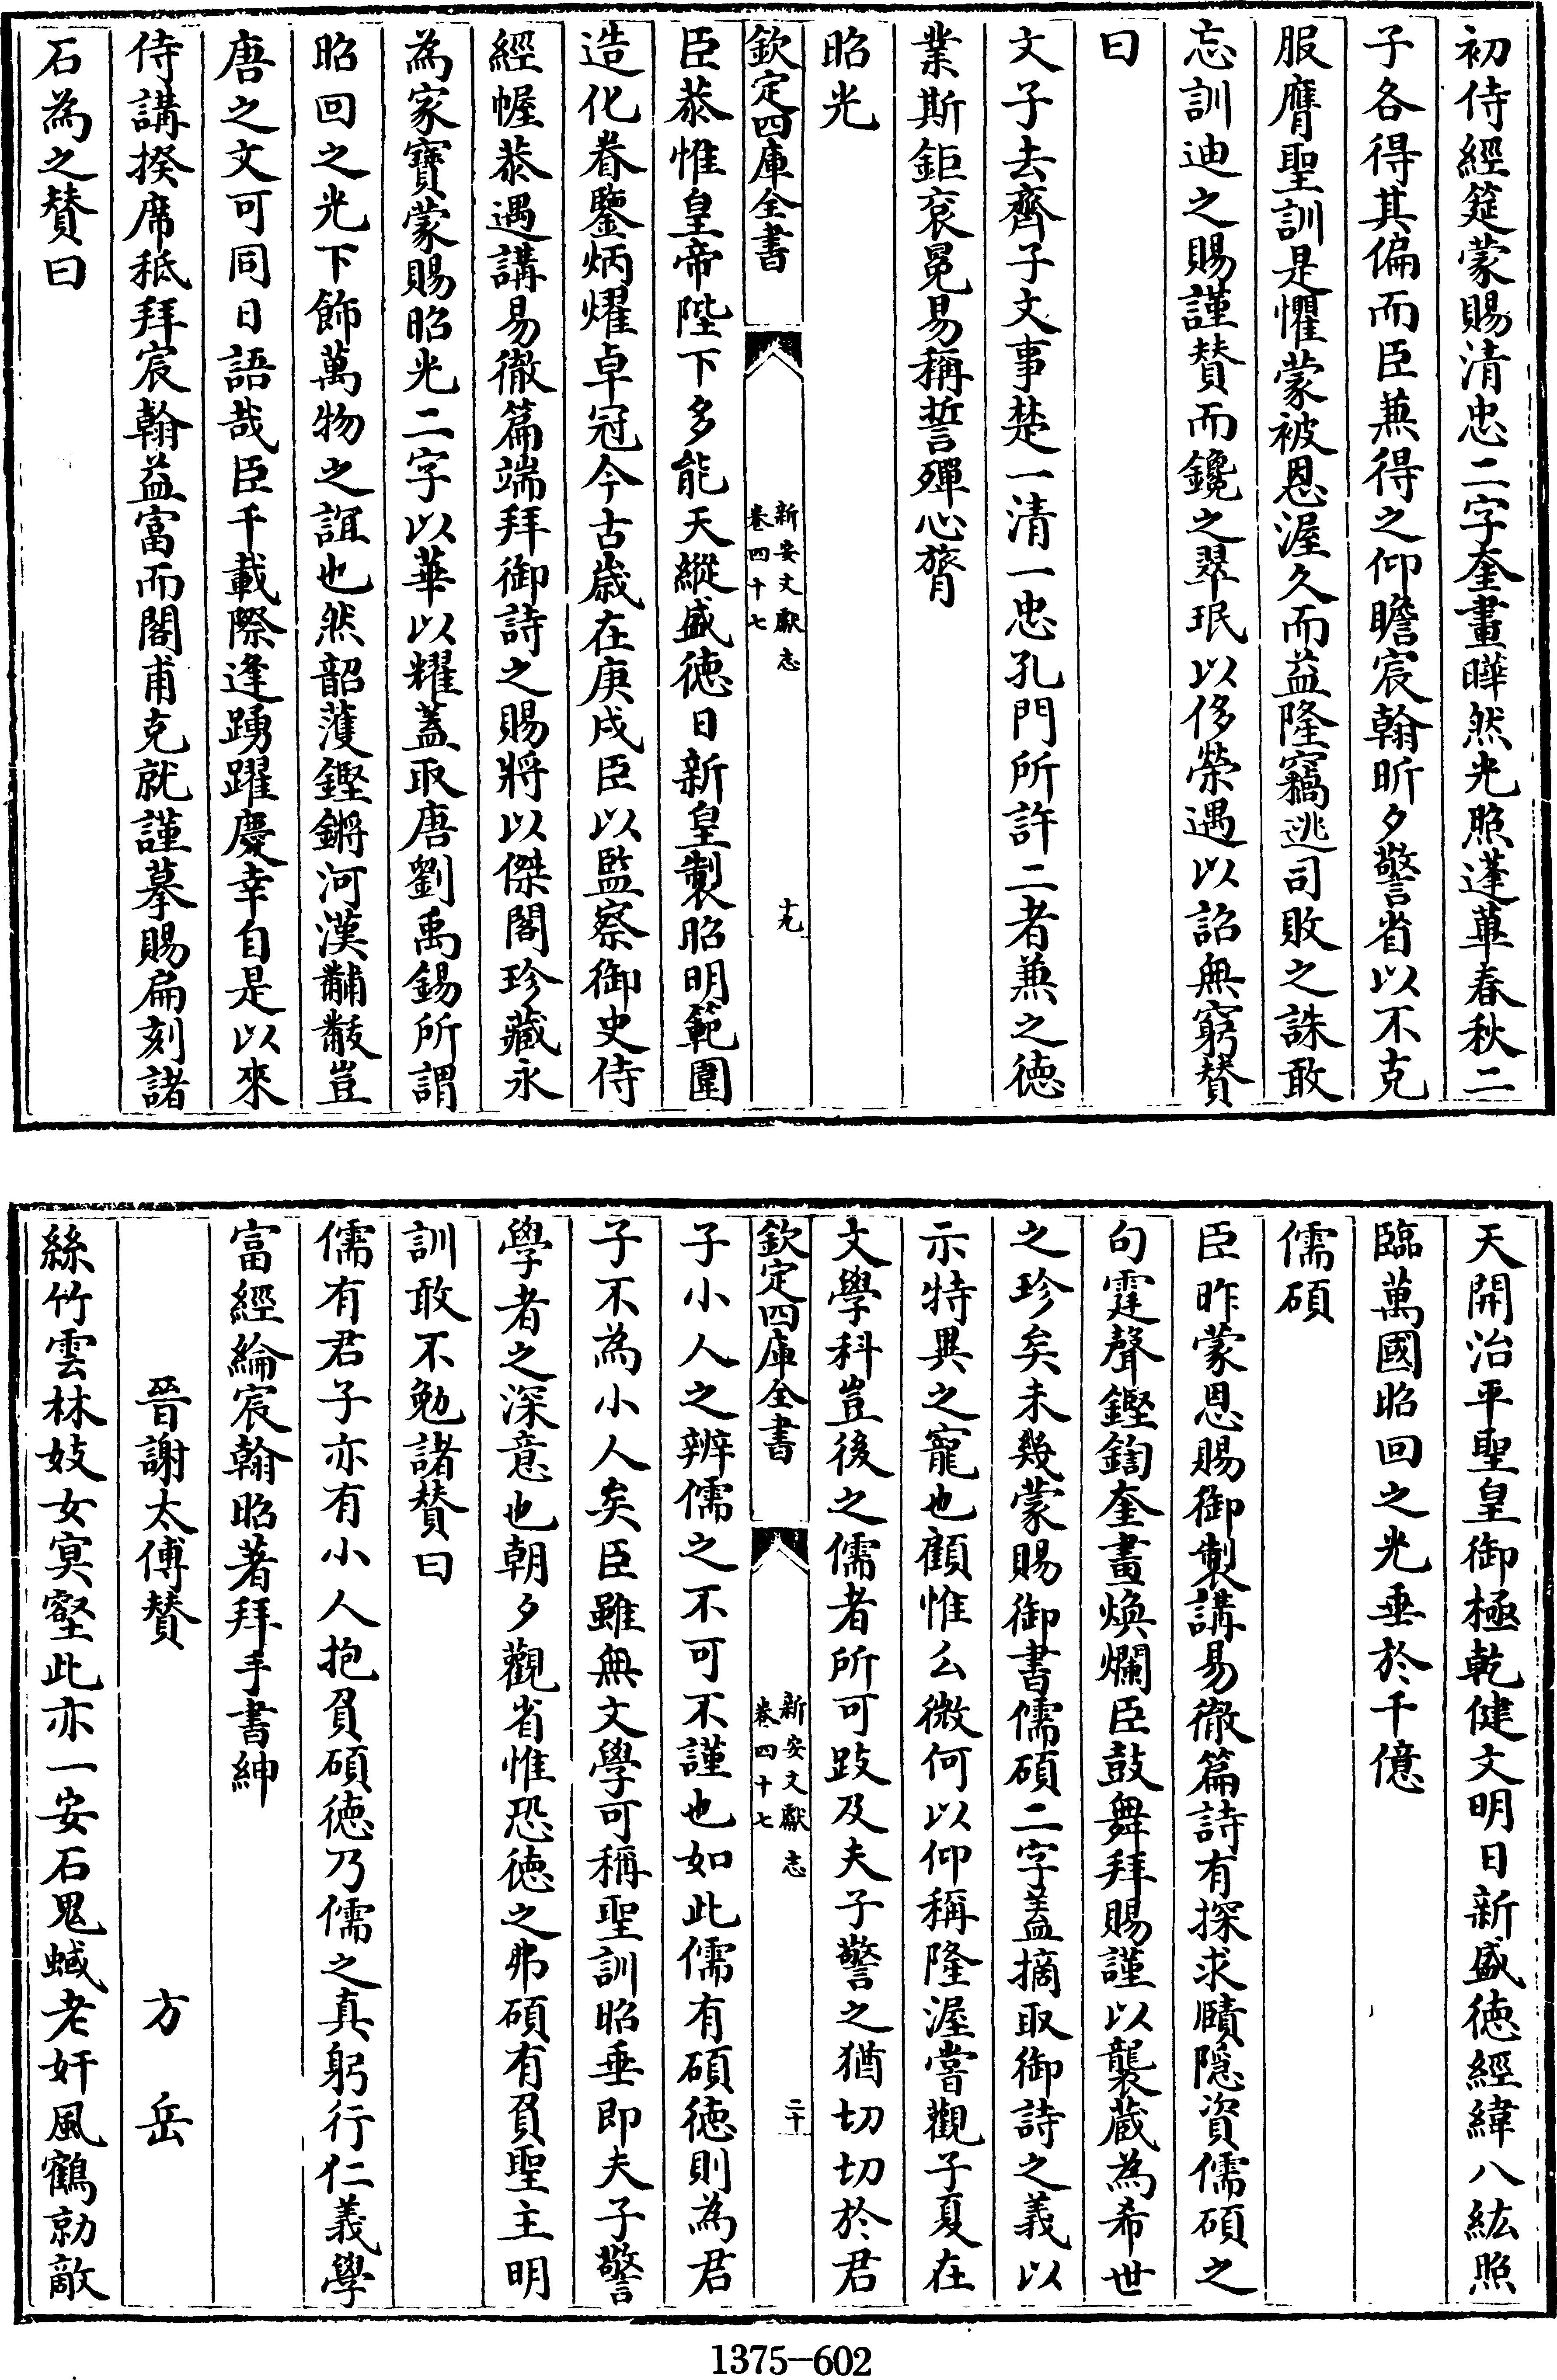 初侍經筵蒙賜清忠二字奎畫曄然光照蓬蓽春秋二
子各得其偏而臣兼得之仰瞻宸翰昕夕警省以不克
服膺聖訓是懼蒙被恩渥久而益隆竊逃司敗之誅敢
忘訓迪之賜謹賛而鑱之翠珉以侈榮遇以詔無窮賛
曰
文子去齊子文事楚一清一忠孔門所許二者兼之徳
業斯鉅衮冕易稱誓殫心膂
昭光
欽定四庫全書
新安文獻志
卷四十七
十九
臣恭惟皇帝陛下多能天縱盛徳日新皇製昭明範圍
造化眷鑒炳燿卓冠今古歳在庚戌臣以監察御史侍
經幄恭遇講易徹篇端拜御詩之賜將以傑閣珍藏永
為家寳蒙賜昭光二字以華以耀蓋取唐劉禹錫所謂
昭回之光下飾萬物之誼也然韶䕶鏗鏘河漢黼黻豈
唐之文可同日語哉臣千載際逢踴躍慶幸自是以來
侍講揆席秪拜宸翰益富而閣甫克就謹摹賜扁刻諸
石為之賛曰
天開治平聖皇御極乾健文明日新盛徳經緯八紘照
臨萬國昭回之光垂於千億
儒碩
臣昨蒙恩賜御製講易徹篇詩有探求賾隠資儒碩之
句霆聲鏗鍧奎畫煥爛臣鼓舞拜賜謹以襲蔵為希世
之珍矣未幾蒙賜御書儒碩二字蓋摘取御詩之義以
示特異之寵也顧惟么微何以仰稱隆渥嘗觀子夏在
文學科豈後之儒者所可跂及夫子警之猶切切於君
欽定四庫全書
新安文獻志
卷四十七
二十
子小人之辨儒之不可不謹也如此儒有碩徳則為君
子不為小人矣臣雖無文學可稱聖訓昭垂即夫子警
學者之深意也朝夕觀省惟恐徳之弗碩有負聖主明
訓敢不勉諸賛曰
儒有君子亦有小人抱負碩徳乃儒之真躬行仁義學
富經綸宸翰昭著拜手書紳
晉謝太傅賛
方岳
絲竹雲林妓女㝠壑此亦一安石鬼蜮老奸風鶴勍敵
1375—602